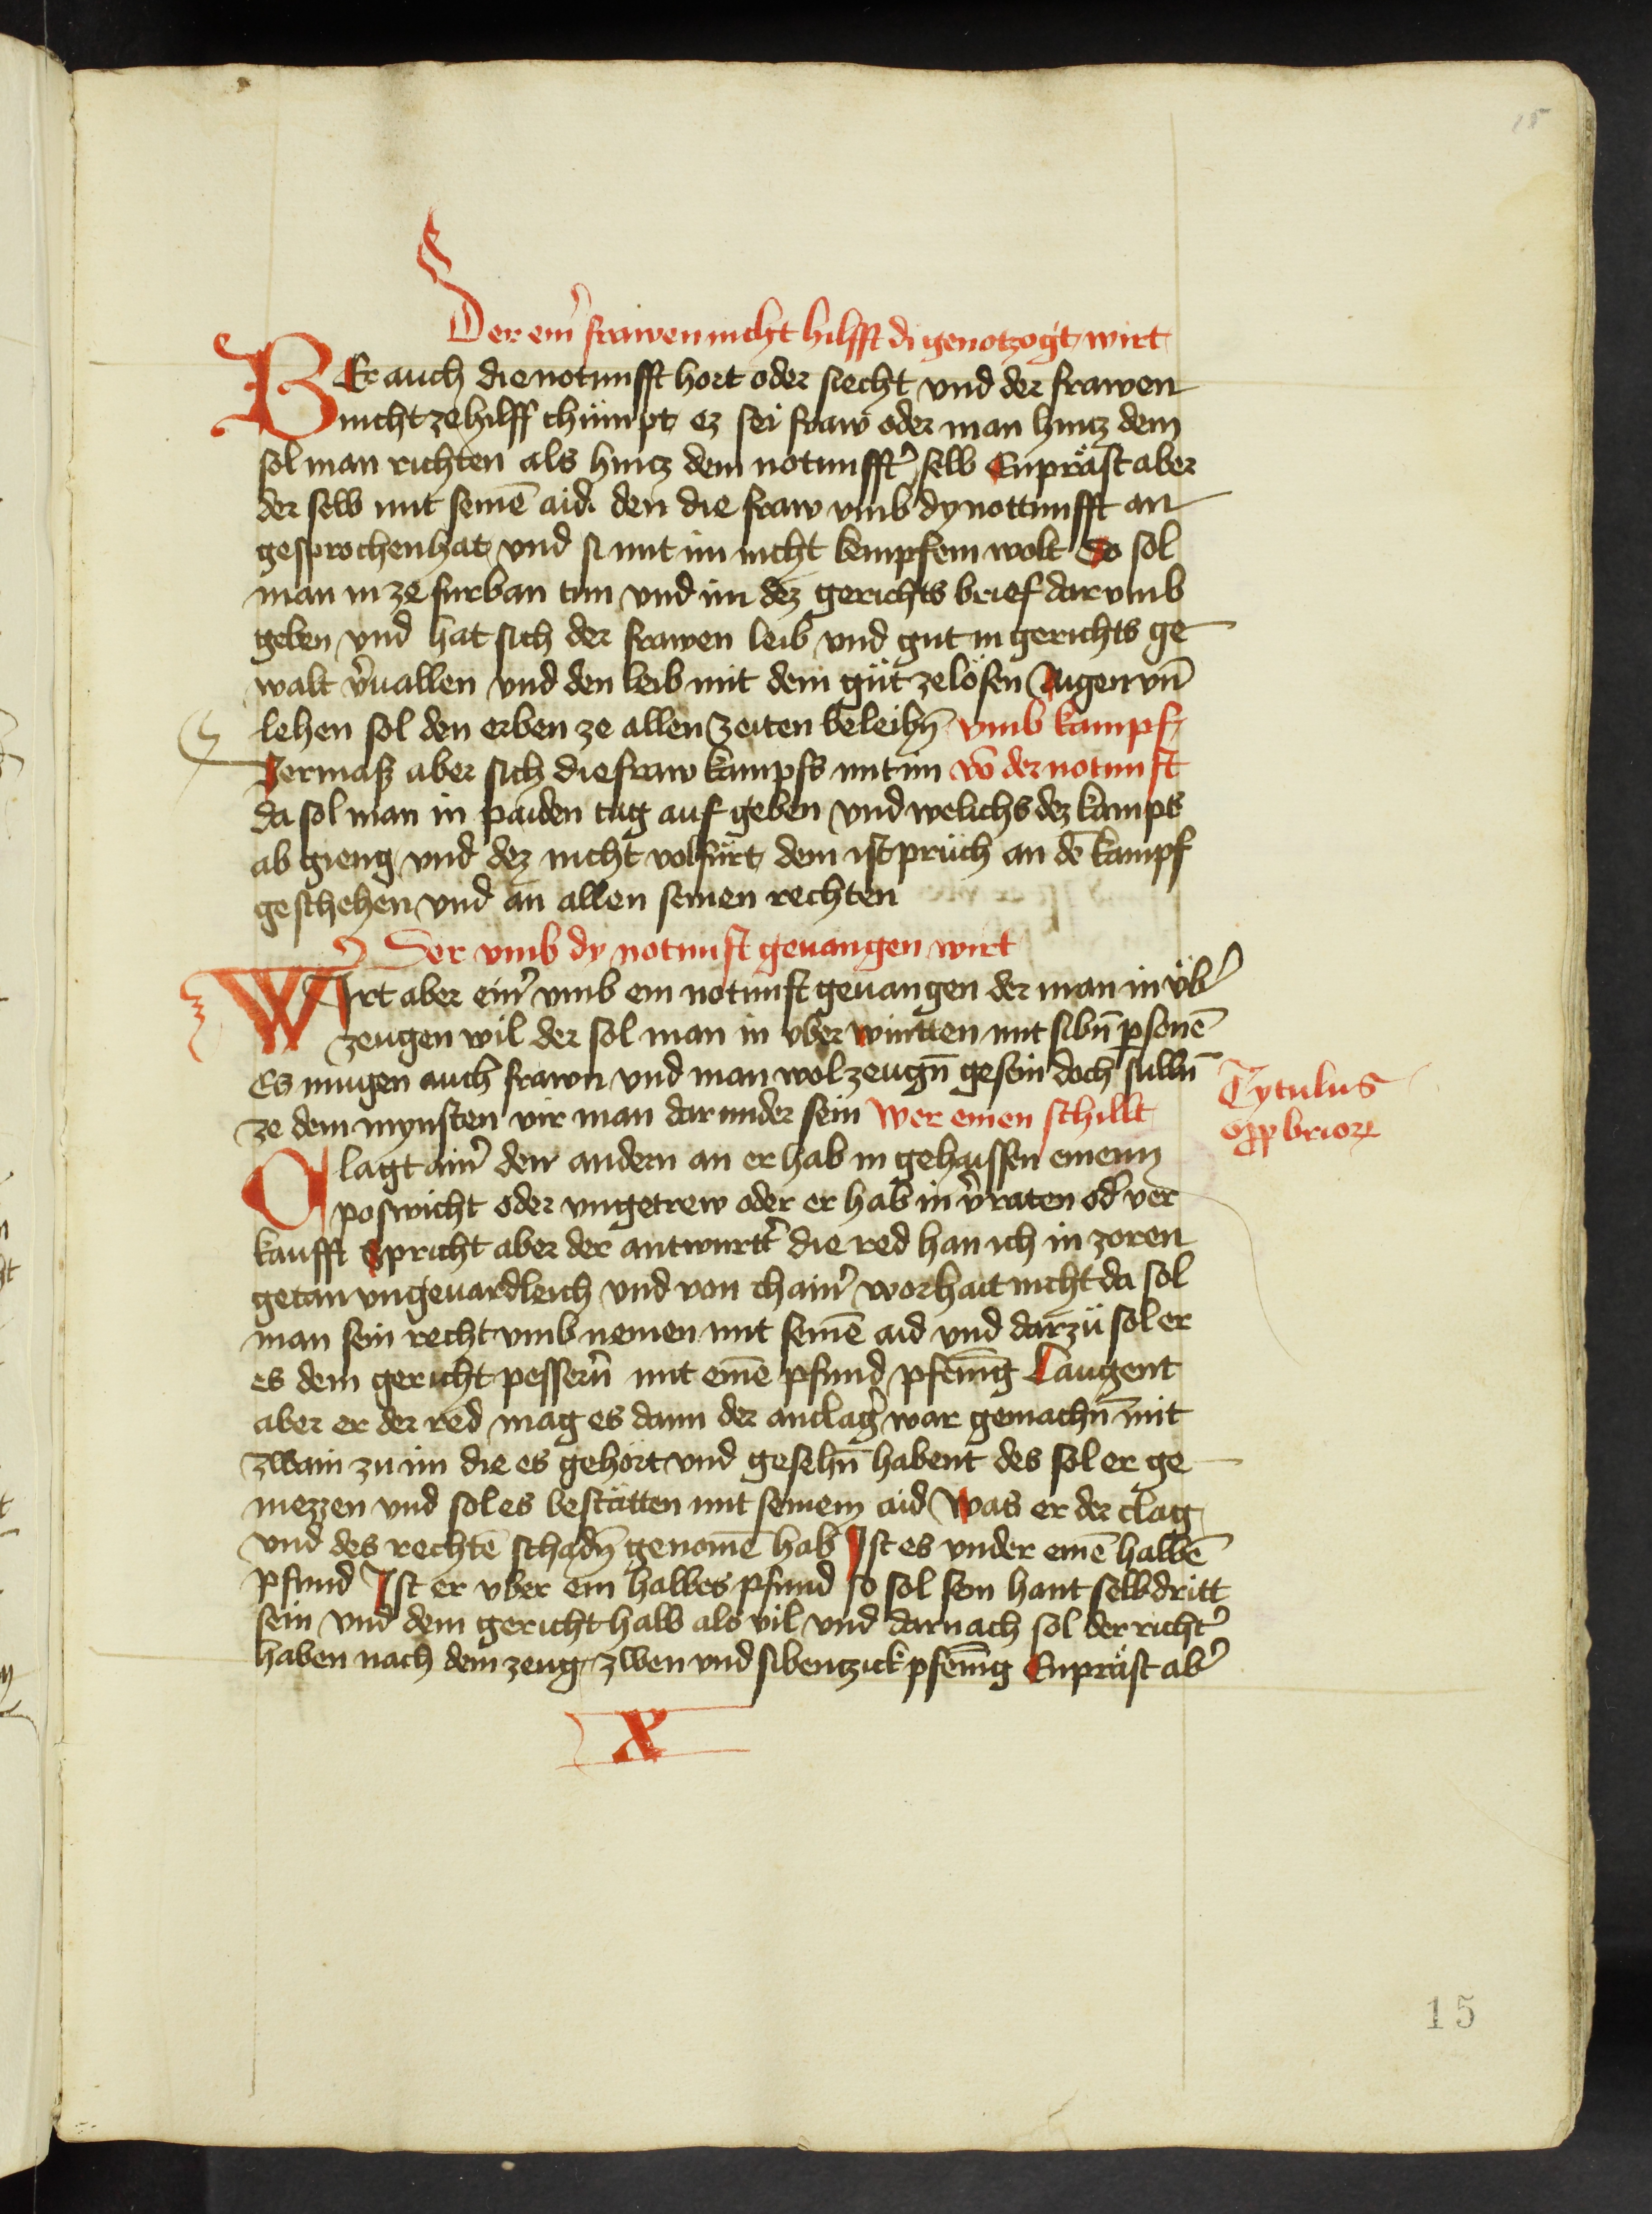 15
Der ein̉ frawen nicht hilfft di genotzogt wirt
BEr auch die notnufft hort oder siecht vnd der frawen
nicht ze hilff chümpt ez sei fraw oder man hincz dem
sol man richten als hincz dem notnufft̉ selb Enpräst aber
der selb mit seinē aid den die fraw vmb dy nottnufft an
gesprochen hat vnd si mit im nicht kempfem wolt So sol
man in ze furban tun vnd im dez gerichts brief dar vmb
geben vnd hat sich der frawen leib vnd gut in gerichts ge
walt v̉uallen vnd den leib mit dem güt ze lösen Aigen vn̄
lehen sol den erben ze allen zeiten beleibn̄ vmb kampf
Vermasz aber sich die fraw kampfs mit im vō der notnuft
da sol man in paiden tag auf geben vnd welichs dez kampfs
ab gieng vnd dez nicht volfürt dem ist prüch an dē kampf
geschehen vnd an allen seinen rechten
Der vmb dy notnuft geuangen wirt
WIrt aber ein̉ vmb ein notnuft geuangen der man in üb̉
zeugen wil der sol man in vber wintten mit sibn̄ psonē
Es mugen auch frawn vnd man wol zeugn̄ gesein doch sulln̄
ze dem mynsten vir man dar under sein Wer einen schillt
Tytulus
oppbrior
Clagt ain̉ den andern an er hab in gehaissen einenn
poswicht oder vngetrew oder er hab in v̉raten od̉ ver
kaufft Spricht aber der antwurtt̉ die red han ich in zoren
getan vngeuardleich vnd von chain̉ worhait nicht da sol
man sein recht vmb nemen mit seinē aid vnd darzü sol er
es dem gericht pessern̉ mit einē pfund pfennīg Laugent
aber er der red mag es dann der anclag̉ war gemachn̄ mit
zwain zu im die es gehört vnd gesehn̄ habent des sol er ge
niezzen vnd sol es bestätten mit seinem aid Was er der clag
vnd des rechtē schadn̄ genomē hab Ist es vnder einē halbē
pfund Ist er vber ein halbes pfund so sol sein hant selb dritt
sein vnd dem gericht halb als vil vnd darnach sol der richt̉
haben nach dem zeug zwen vnd sibentzick pfennīg Enpräst ab̉
X
15